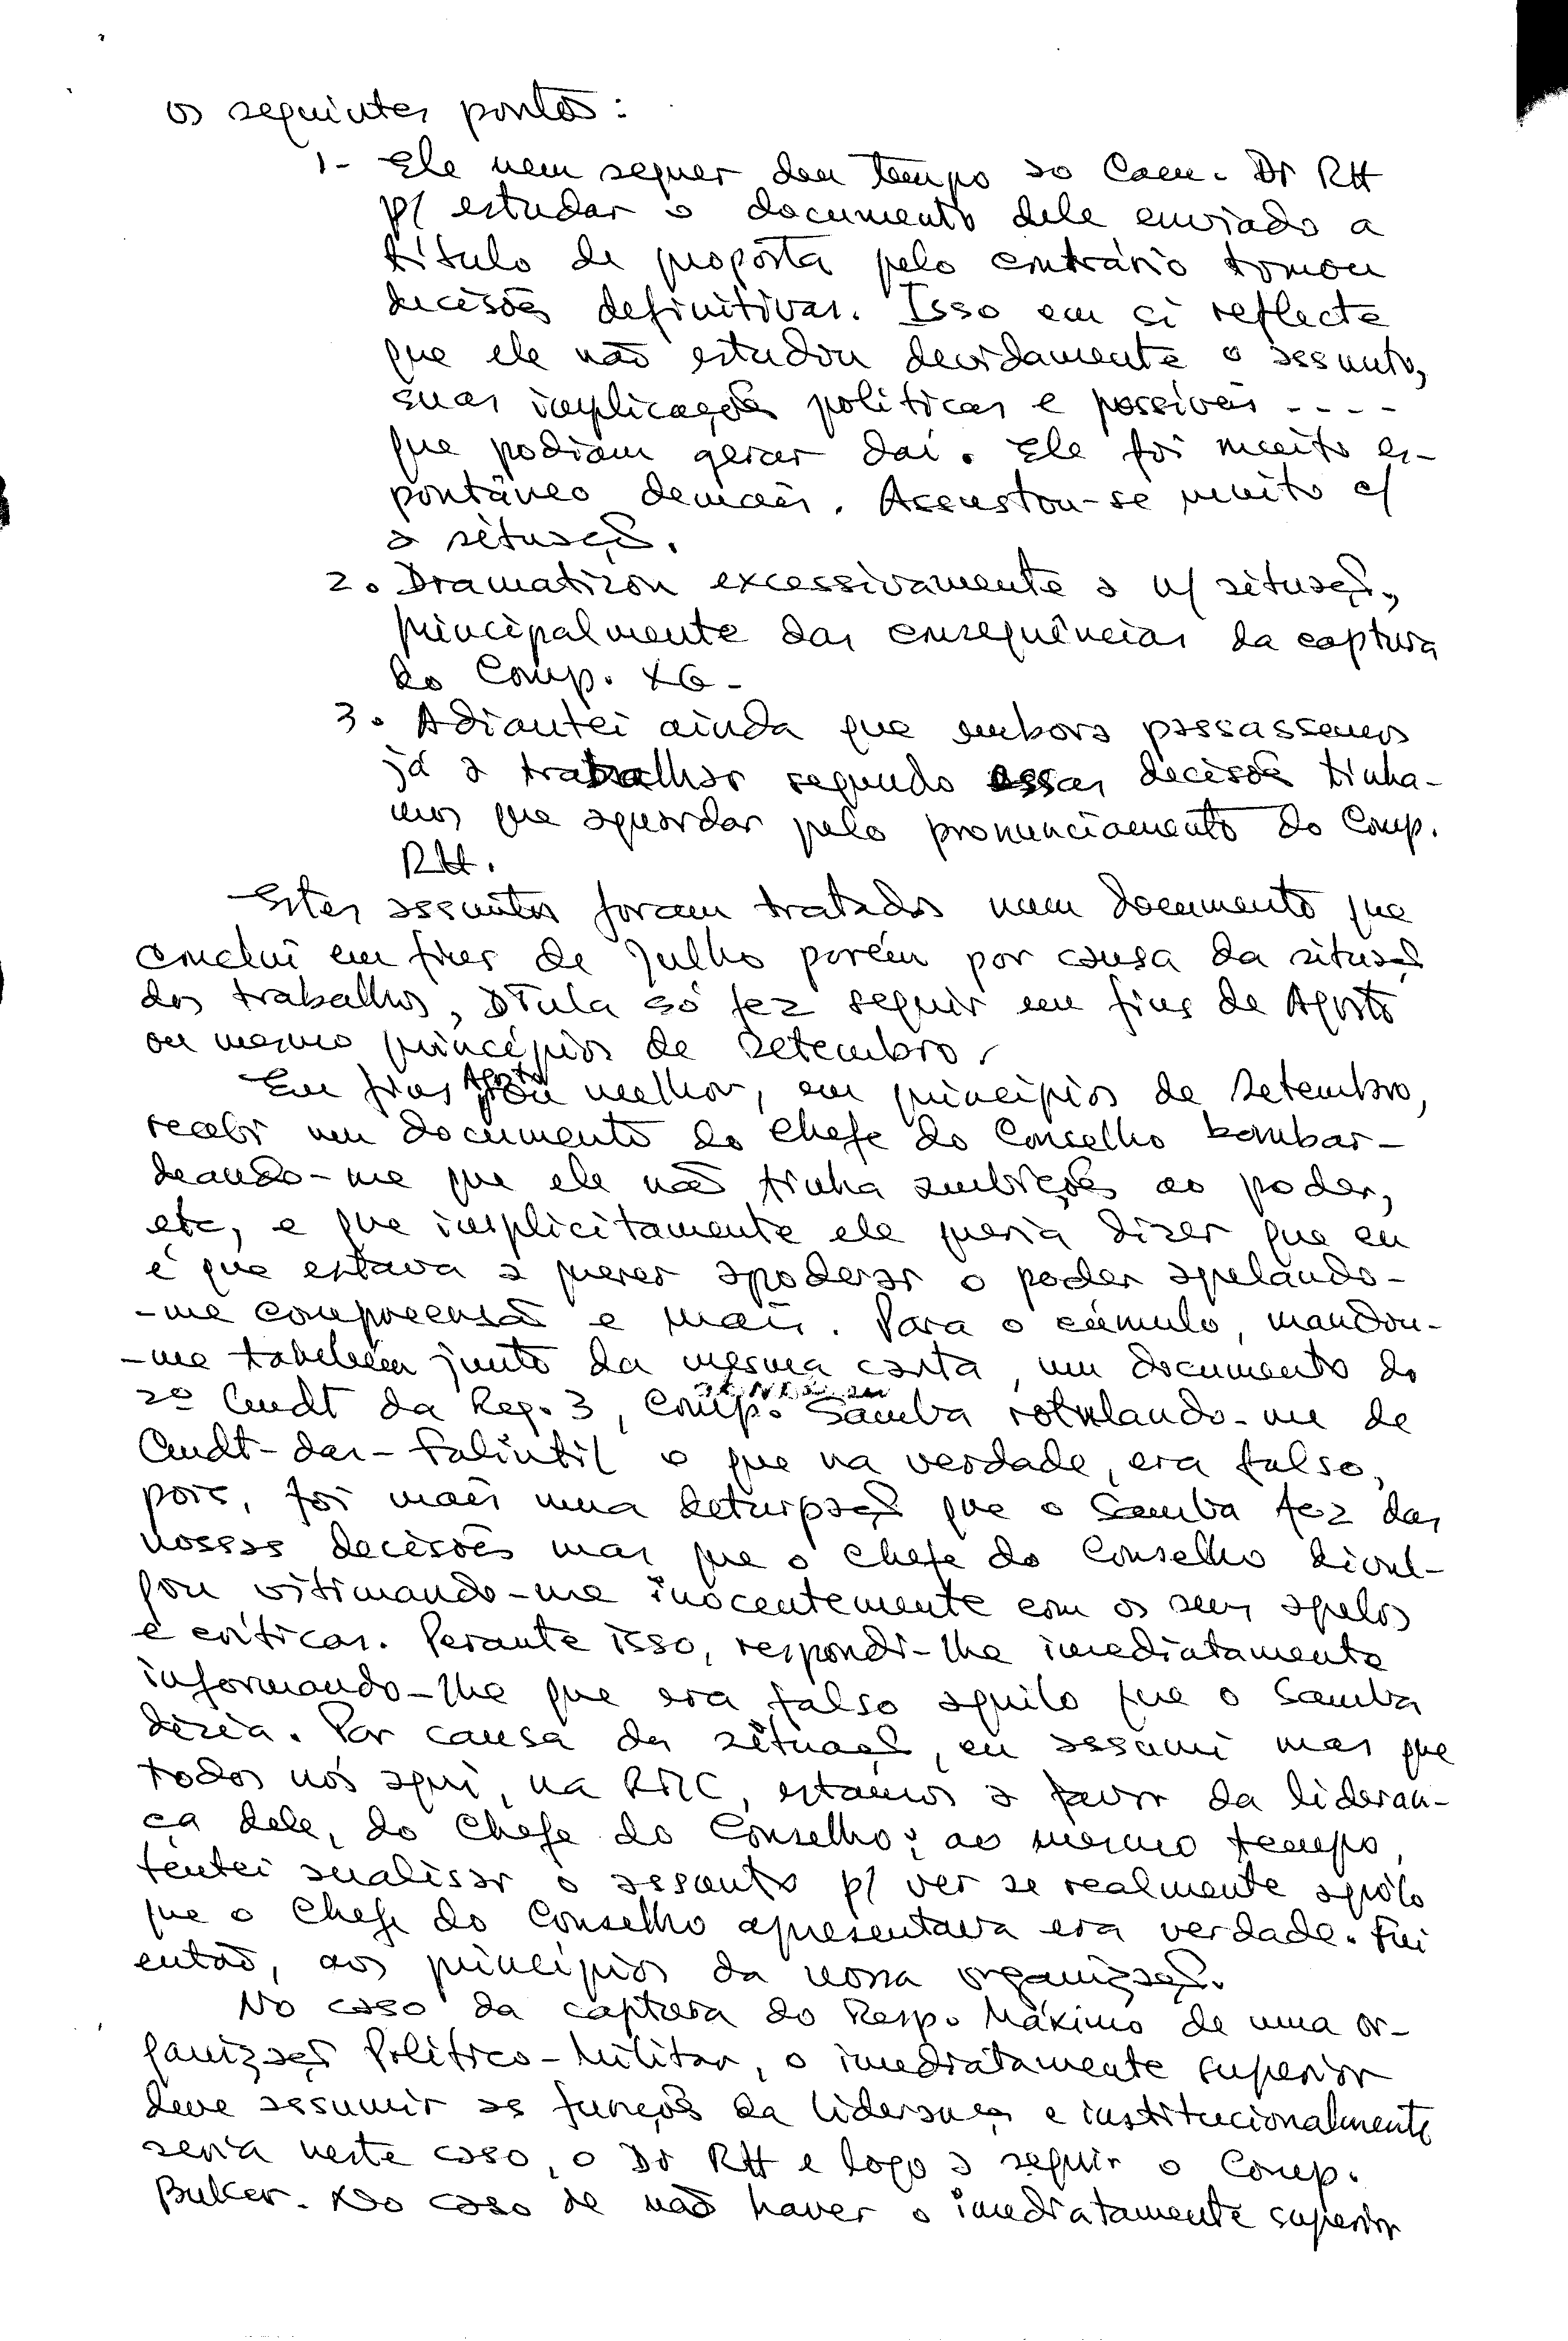 os seguintes pontos:
1- Ele nem sequer deu tempo ao Cam. Dr RH
p/ estudar o documento dele enviado a
título de proposta pelo contrário tomou
decisões definitivas. Isso em si reflecte
que ele não estudou devidamente o assunto,
suas implicações políticas e possíveis ----
que podiam gerar daí. Ele foi muito es-
pontâneo demais. Assustou-se muito c/
a situação.
2. Dramatizou excessivamente a n/ situação,
principalmente das consequências da captura
do Comp. XG-
3. Adiantei ainda que embora passassemos
já a trabalhar segundo essas decisões tinha-
mos que aguardar pelo pronunciamento do Comp.
RH.
Estes assuntos foram tratados num documento que
conclui em fins de Julho porém por causa da situação
dos trabalhos, Dtula só fez seguir em fins de Agosto
ou mesmo princípios de Setembro.
Em fins Agosto ou melhor, em princípios de Setembro,
recebi um documento do Chefe do Conselho bombar-
deando-me que ele não tinha ambições ao poder,
etc, e que implicitamente ele queria dizer que eu
é que estava a querer apoderar o poder apelando-
-me compreensão e mais. Para o cúmulo, mandou-
-me também junto da mesma carta, um documento do
2º Cmdt da Reg. 3, Comp. Samba rotulando-me de
Cmdt-das-Falintil o que na verdade, era falso,
pois, foi mais uma deturpação que o Samba fez das
nossas decisões mas que o Chefe do Conselho divul-
gou vitimando-me inocentemente com os seus apelos
e críticas. Perante isso, respondi-lhe imediatamente
informando-lhe que era falso aquilo que o Samba
dizia. Por causa da situação, eu assumi mas que
todos nós aqui, na RMC, estamos a favor da lideran-
ça dele, do Chefe do Conselho; ao mesmo tempo,
tentei analisar o assunto p/ ver se realmente aquilo
que o Chefe do Conselho apresentava era verdade. Fui
então, aos princípios da nossa organização.
No caso da captura do Resp. Máximo de uma or-
ganização Político-Militar, o imediatamente superior
deve assumir as funções da liderança e institucionalmente
seria neste caso, o Dr RH e logo a seguir o Comp.
Bulcer. No caso de não haver o imediatamente superior